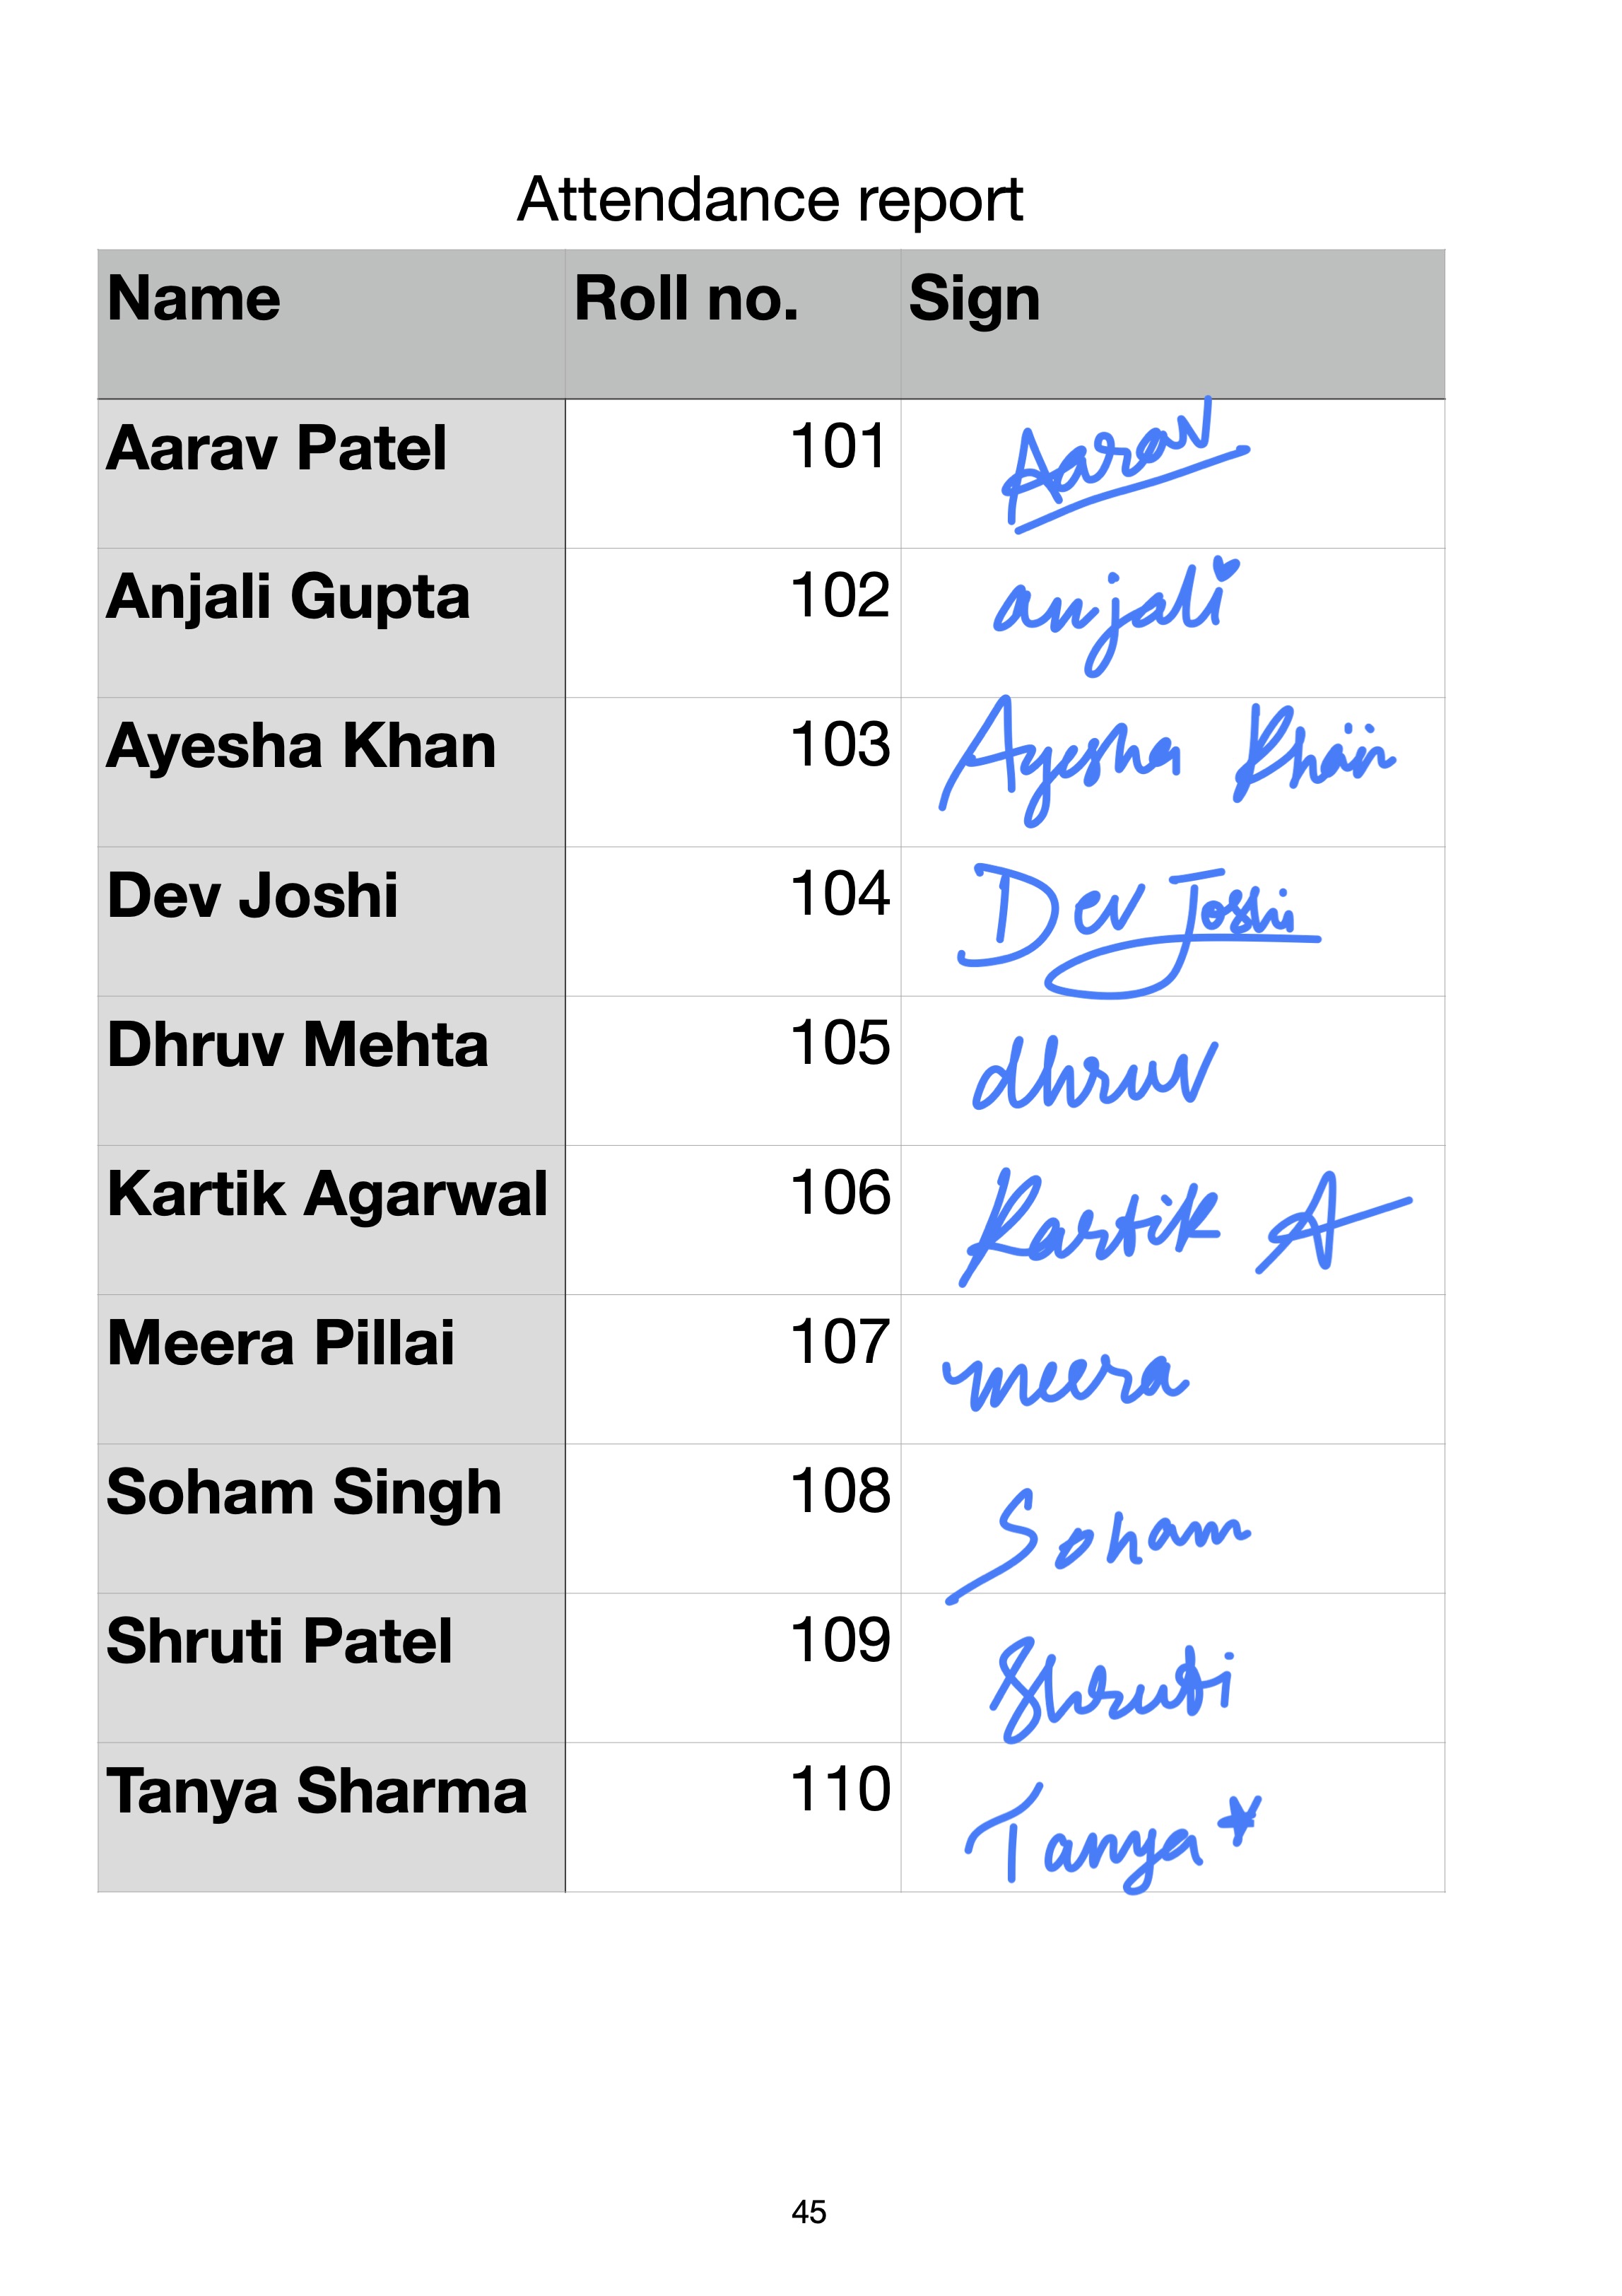 Attendance report
Name Roll no. Sign
Aarav Patel 101 Aarav
Anjali Gupta 102 anjali
Ayesha Khan 103 Ayesha Khan
Dev Joshi 104 Dev Joshi
Dhruv Mehta 105 dhruv
Kartik Agarwal 106 Kartik A
Meera Pillai 107 meera
Soham Singh 108 Soham
Shruti Patel 109 Shruti
Tanya Sharma 110 Tanya
45